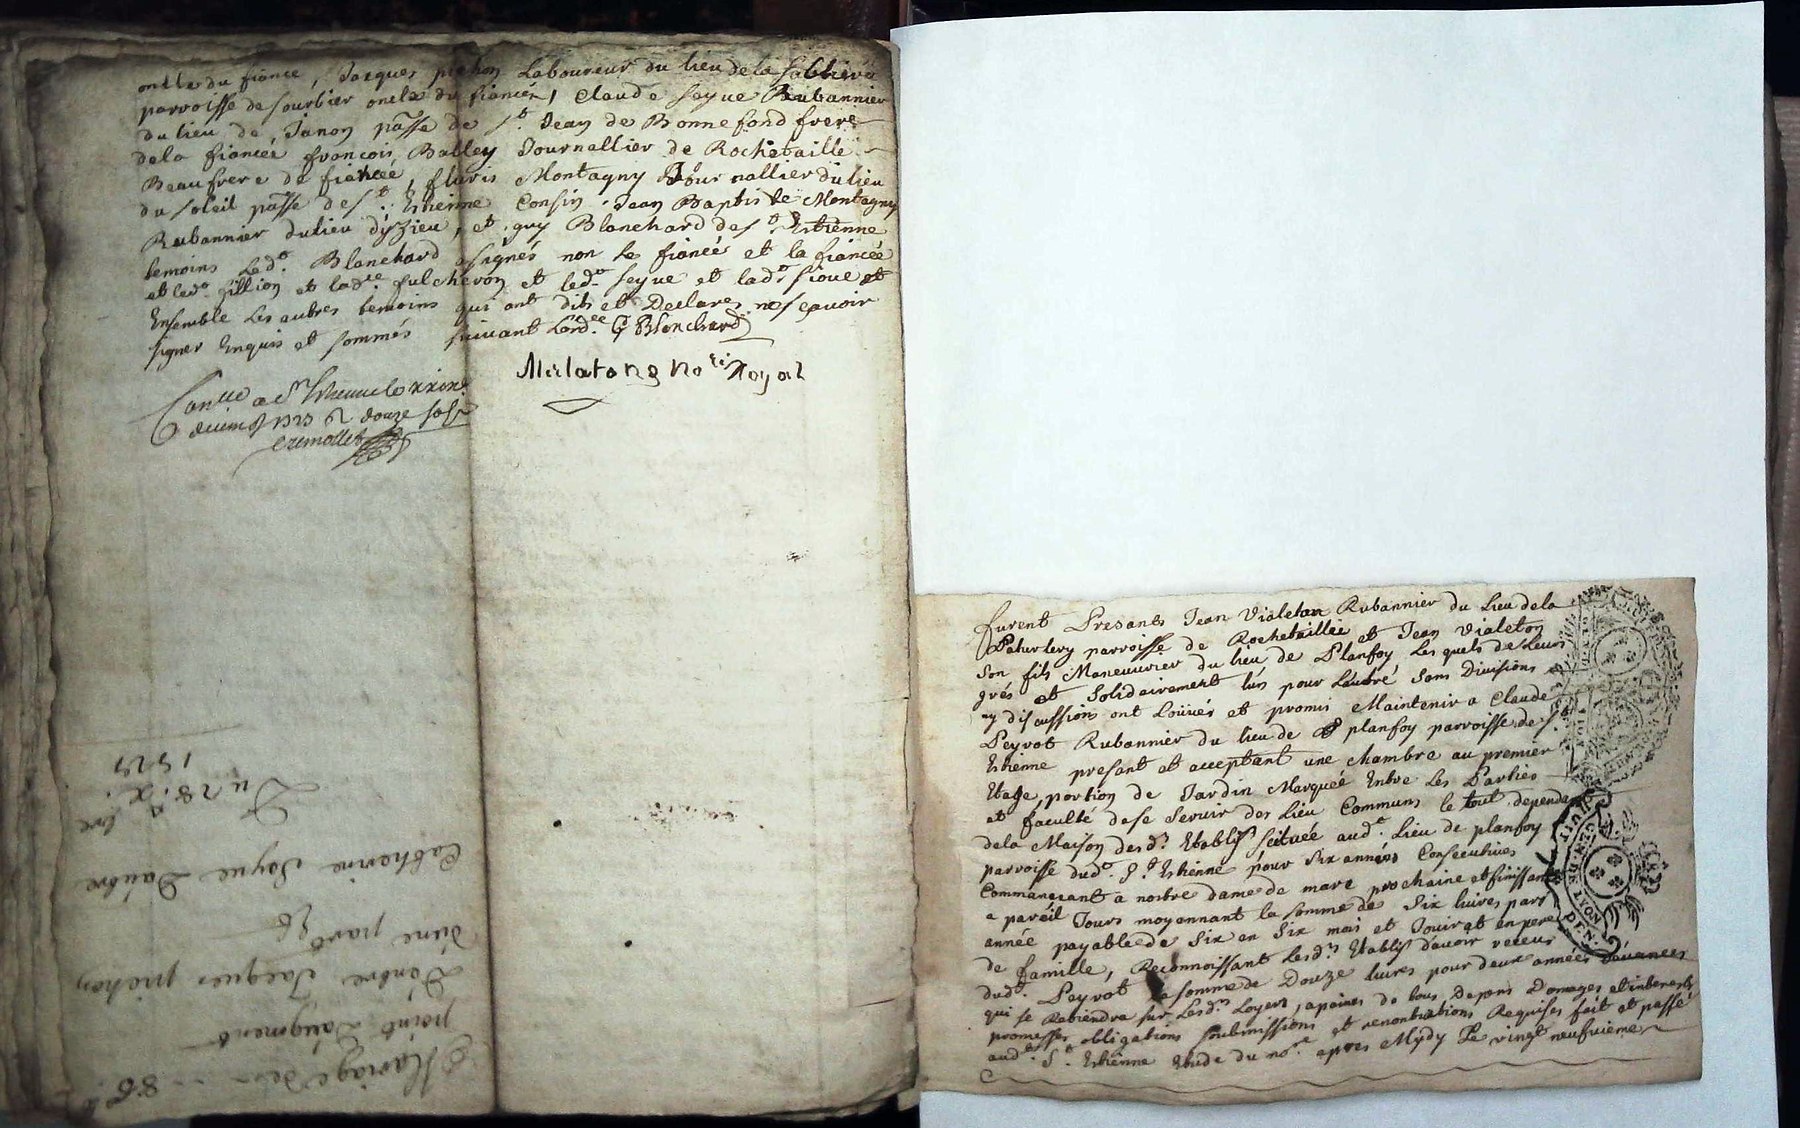 oncle du fiance, Jacques pichon Laboureur du lieu de la Sabliera
parroisse de sourbier oncle du fiancéé, Claude seyve Rubannier
du lieu de Janon pa͠sse de St. Jean de Bonnefond frere
dela fiancéé francois Balley Journallier de Rochetaille
Beaufrere de fiancéé, fluris Montagny Journallier du lieu
du soleil pa͠sse de st. Estienne Cousin Jean Baptiste Montagny
Rubannier du lieu dyzieu, et guy Blanchard de st. Estienne
temoins Led. Blanchard signés non Le fiancéé et la fiancéé
et led. fillion et lad. fulcheron et led. seyve et lad. et
Ensemble Les autres temoins qui ont dits et Declares ne scavoir
signer Enquis et sommés suivant Lord.ce G Blanchard
Malatong No.re Royal
a St Estienne le
1723 douze sols
Mariage de
point Daugment
Dentre Jacques pichon
d'une part
Catherine Seyve D'autre
Du 28. xbre
furent Presants Jean Vialeton Rubannier du Lieu dela
parroisse de Rochetaillée et Jean Vialeton
son fils Maneuvrier du lieu de Planfoy Les quels de Leurs
grés et Solidairement Lun pour Lautré Sans Divisions
ny discussions ont Loüués et promis Maintenir a Claude
Peyrot Rubannier du lieu de planfoy parroisse de St.
Estienne present et acceptant une chambre au premier
Etage, portion de Jardin Marquéé Entre Les Parties
et faculté dese Servir des Lieu Communs le tout dependant
dela Maison desd. Establis scituéé aud. Lieu de planfoy
parroisse dud. St. Estienne pour Six années Consecutives
Commançant a nostre dame de mars prochaine et finissant
a pareil Jours moyennant la somme de Six livres par
année payable de Six en Six mois et Jouir en pere
de famille, Reconnoissant Lesd. Establis d'avoir receus
dud. Peyrot La somme de Douze livres pour deux années d'avances
qui se Retiendra sur Lesd. Loyers, a peines de tous Depens Domages et interests
promesses obligations soubmissions et renontiations Requises fait et passé
aud. St. Estienne Etude du no.re apres Mydy Le vingt neufuieme
GEN. DE LYON
DEN.